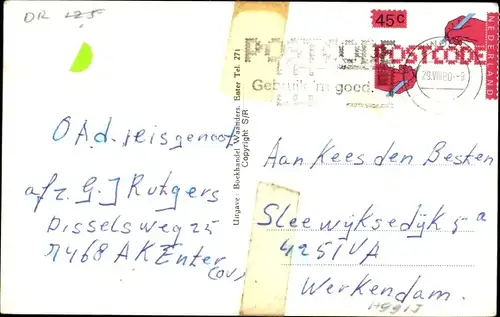 DR 125
45c
NEDERLAND
POSTCODE
POSTCODE
29.VIII.80.-9
Gebruik 'm goed.
Uitgave: Boekhandel Waanders, Enter Tel. 271
Copyright S/R
O Ad. reisgenoot
afz. G.J Rutgers
Disselsweg 25
7468 AK Enter
(ov)
Aan Kees den Besten
Sleewijksedijk 5a
4251 VA
Werkendam.